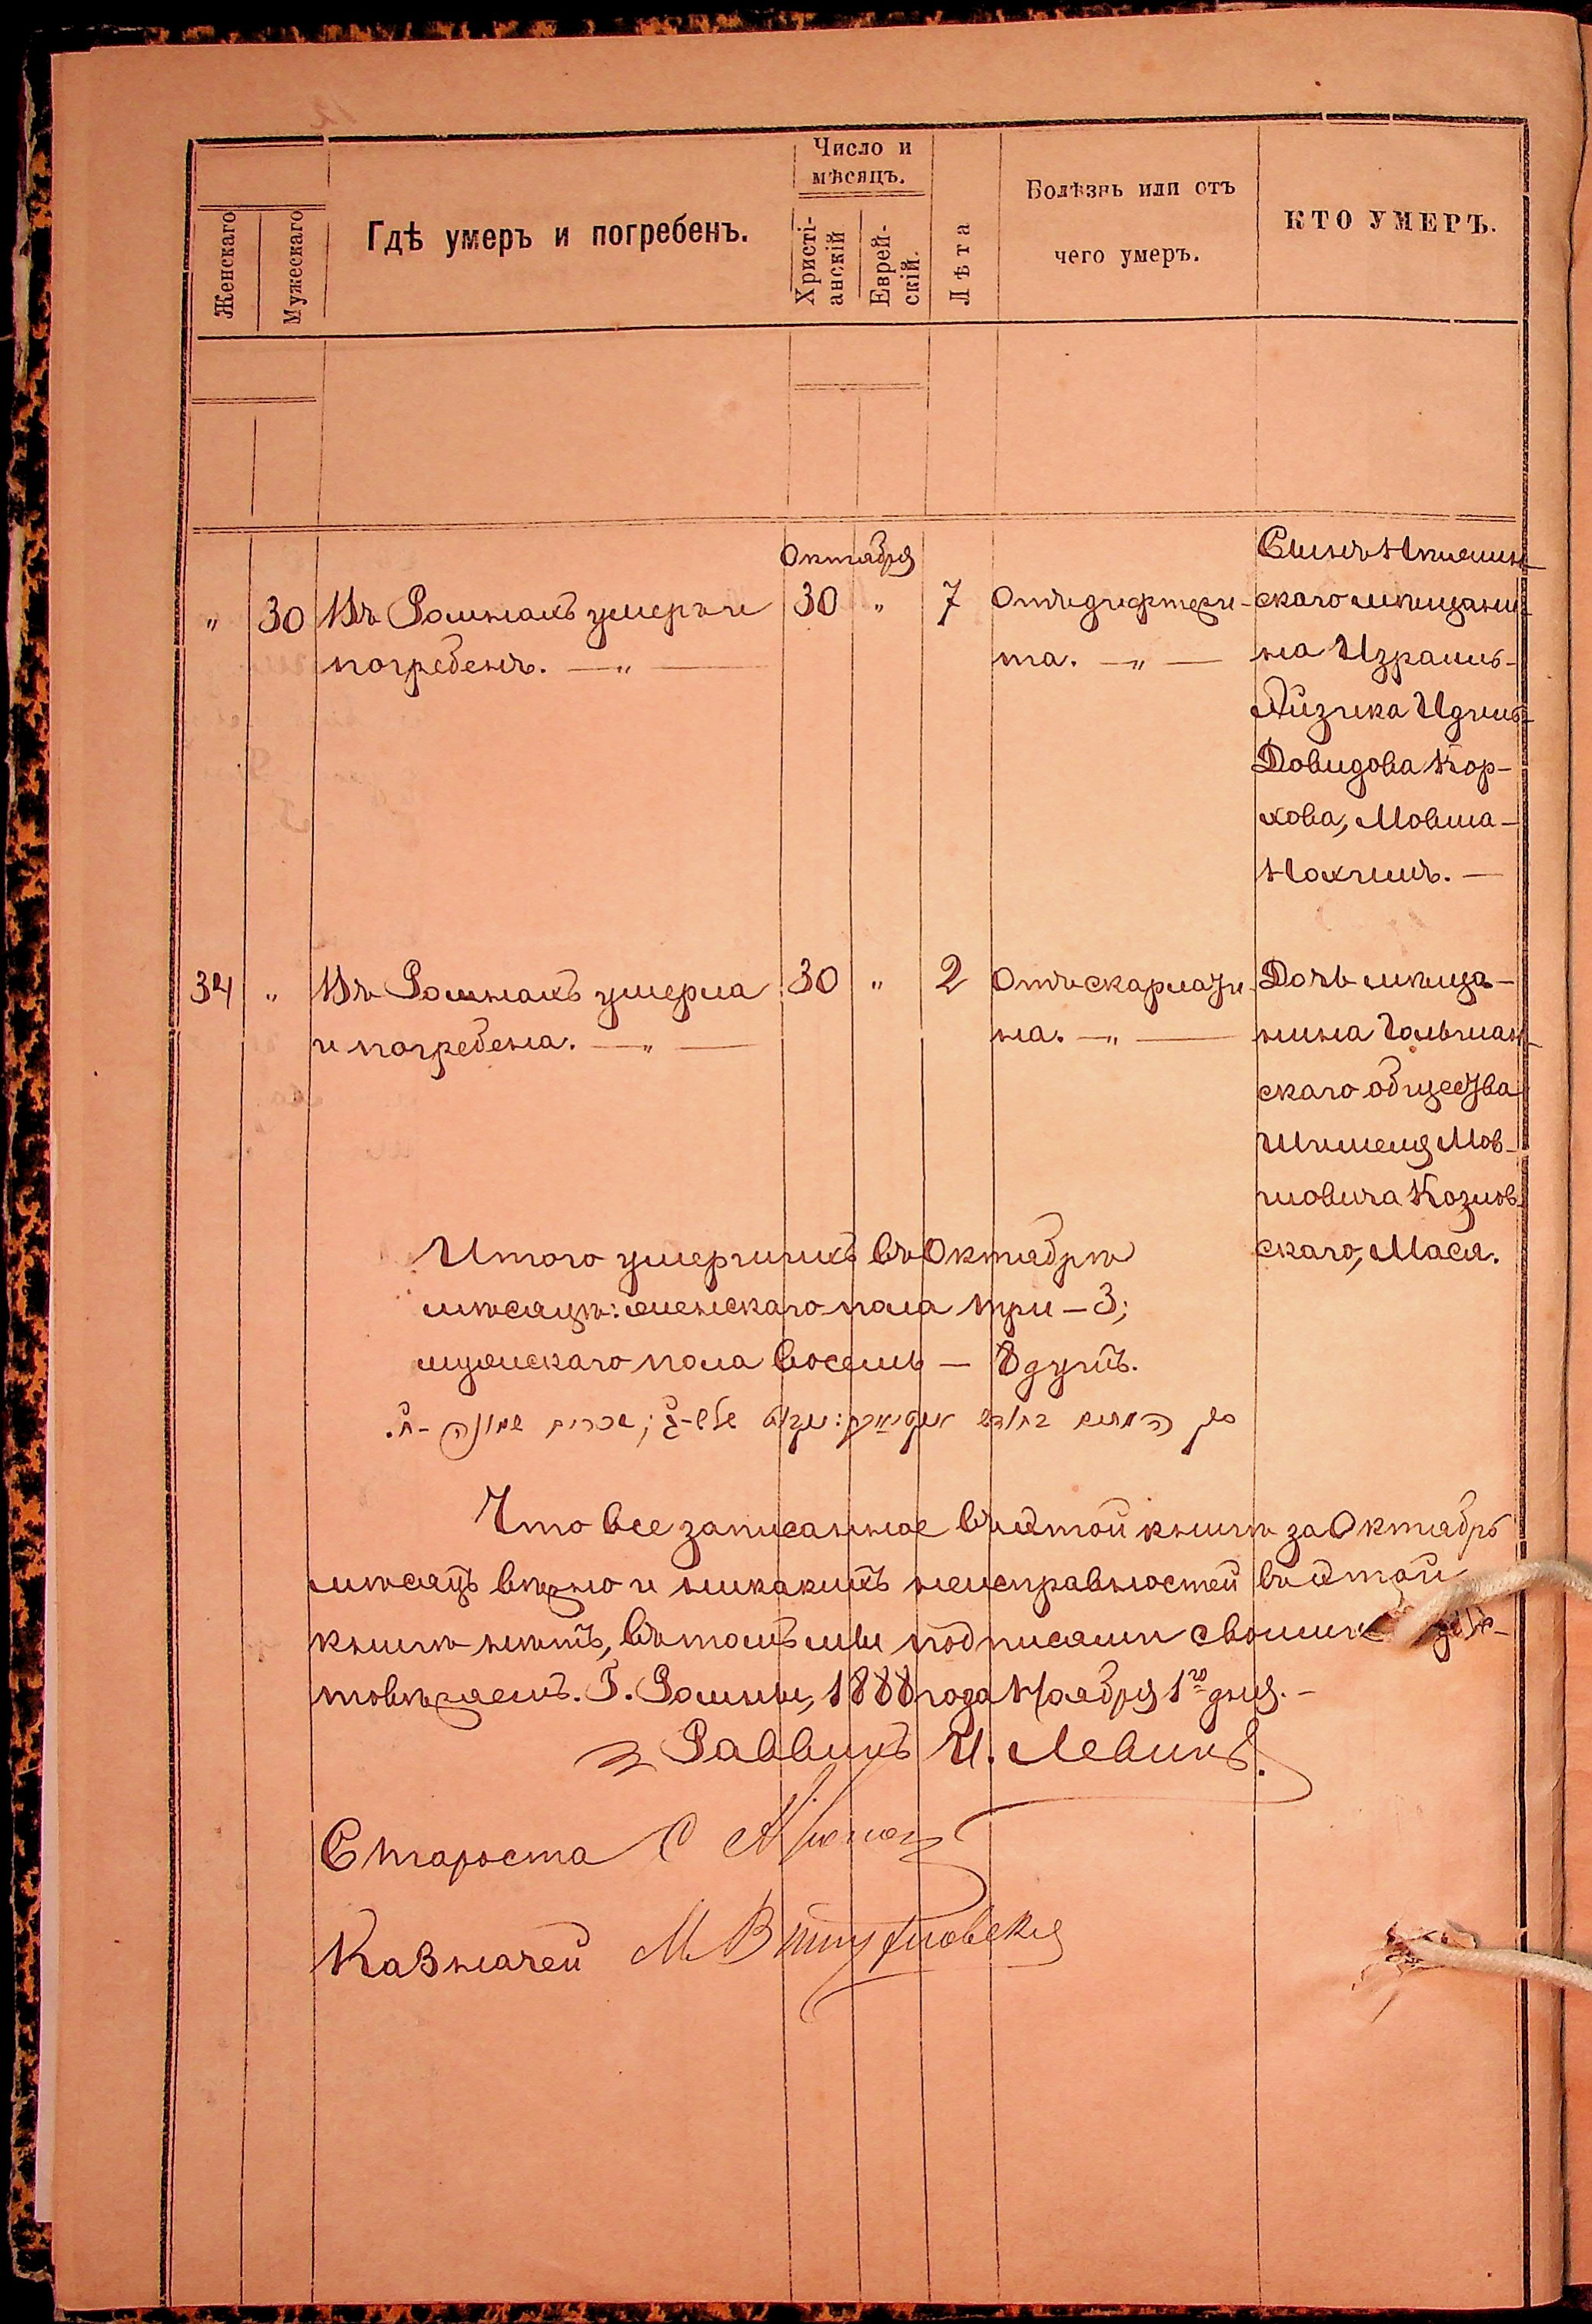 Женскаго
Мужескаго
Гдѣ умеръ и погребенъ.
Число и
мѣсяцъ.
Христі-
анскій
Еврей-
скій.
Лѣта
Болѣзнь или отъ
чего умеръ.
КТО УМЕРЪ.
Октября
" 30 Въ Ромнахъ умеръ и
погребенъ. — " —
30 " 7
Отъ дифтери-
та. — " —
Сынъ
скаго мѣщани-
на Израиль-
Айзика Идель-
Довидова Кор-
хова, Мовша-
Нохимъ. —
34 " Въ Ромнахъ умерла
и погребена. — " —
30 " 2
Отъ скарлати-
на. — " —
Дочь мѣща-
нина
скаго общества
Мов-
шовича Козлов-
скаго, Мася.
Итого умершихъ въ Октябрѣ
мѣсяцѣ: женскаго пола три — 3;
мужскаго пола восемь — 8 душъ.
Что все записанное въ этой книгѣ за Октябрь
мѣсяцъ вѣрно и никакихъ неисправностей въ этой
книгѣ нѣтъ, въ томъ мы подписями своими
товѣряемъ. Г. Ромны, 1888 года Ноября 1го дня. –
Раввинъ И. Левинъ.
Староста С
Казначей М